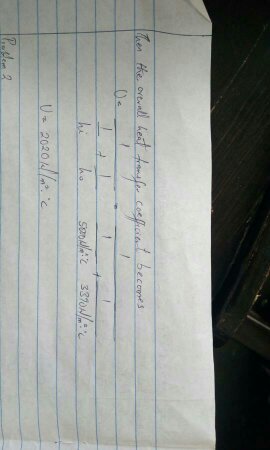 Then the overall heat transfer coefficient becomes
U = 1 / (1/hi + 1/ho) = 1 / (1/5000W/m²·°C + 1/3390W/m²·°C)
U = 2020W/m²·°C
Problem 2